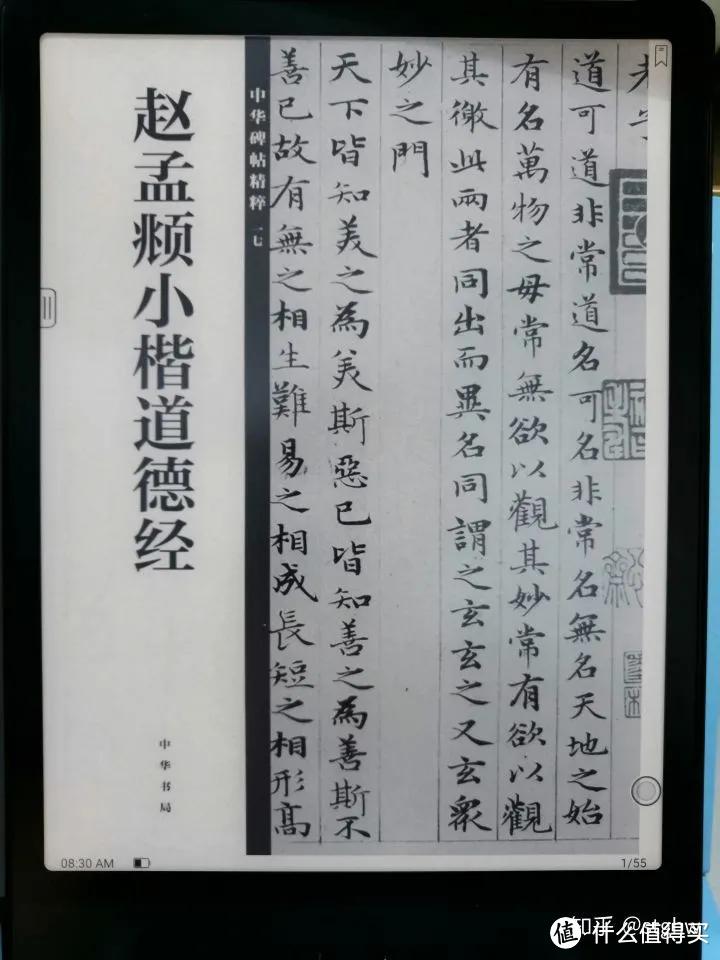 赵孟𫖯小楷道德经
中华书局
中华碑帖精粹 一七
道可道非常道名可名非常名無名天地之始
有名萬物之母常無欲以觀其妙常有欲以觀
其徼此兩者同出而異名同謂之玄玄之又玄眾
妙之門
天下皆知美之為美斯惡已皆知善之為善斯不
善已故有無之相生難易之相成長短之相形高
08:30 AM
1/55
知乎
值 什么值得买